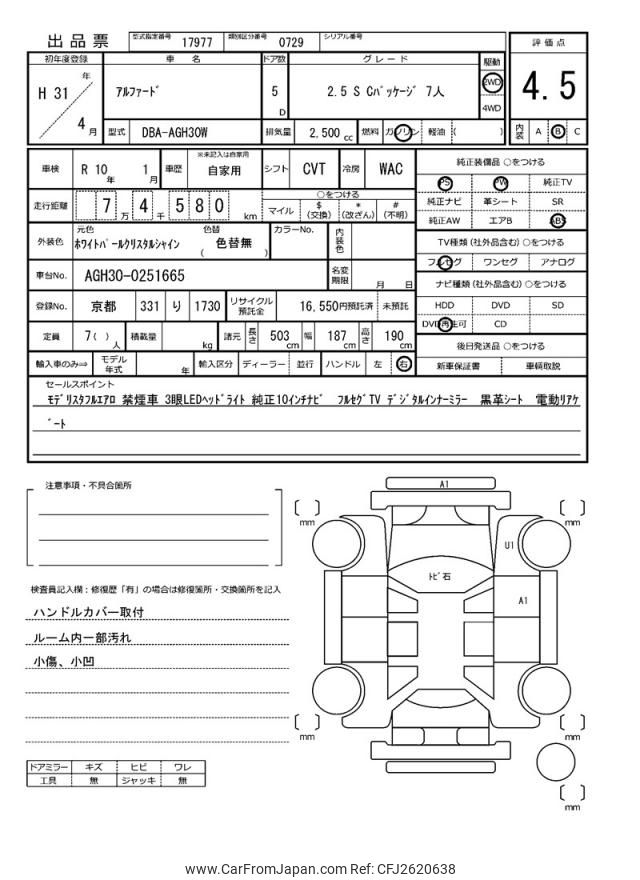 出品票 型式指定番号 17977 類別区分番号 0729 シリアル番号
初年度登録 車名 ドア数 グレード 駆動 評価点
H 31 年 4 月 アルファード 5 D 2.5 S Cパッケージ 7人 2WD 4WD 4.5
型式 DBA-AGH30W 排気量 2,500 cc 燃料 ガソリン 軽油 ( ) 内装 A B C
車検 R 10 年 1 月 車歴 ※未記入は自家用 自家用 シフト CVT 冷房 WAC
純正装備品 ○をつける
PS PW 純正TV
純正ナビ 革シート SR
純正AW エアB ABS
走行距離 7 万 4 千 5 8 0 km
○をつける
マイル $ (交換) * (改ざん) # (不明)
外装色 元色 ホワイトパールクリスタルシャイン 色替 ( 色替無 ) カラーNo. 内装色
TV種類 (社外品含む) ○をつける
フルセグ ワンセグ アナログ
車台No. AGH30-0251665 名変期限 月 日
ナビ種類 (社外品含む) ○をつける
HDD DVD SD
DVD再生可 CD
登録No. 京都 331 り 1730 リサイクル預託金 16,550円預託済 未預託
定員 7 ( ) 人 積載量 kg 諸元 長さ 503 cm 幅 187 cm 高さ 190 cm
後日発送品 ○をつける
新車保証書 車輌取説
輸入車のみ⇒ モデル年式 年 輸入区分 ディーラー 並行 ハンドル 左 右
セールスポイント
モデリスタフルエアロ 禁煙車 3眼LEDヘッドライト 純正10インチナビ フルセグTV デジタルインナーミラー 黒革シート 電動リアゲ
ート
注意事項・不具合箇所
検査員記入欄：修復歴「有」の場合は修復箇所・交換箇所を記入
ハンドルカバー取付
ルーム内一部汚れ
小傷、小凹
ドアミラー キズ ヒビ ワレ
工具 無 ジャッキ 無
A1
[ ] mm
[ ] mm
U1
トビ石
A1
[ ] mm
[ ] mm
[ ] mm
www.CarFromJapan.com Ref: CFJ2620638